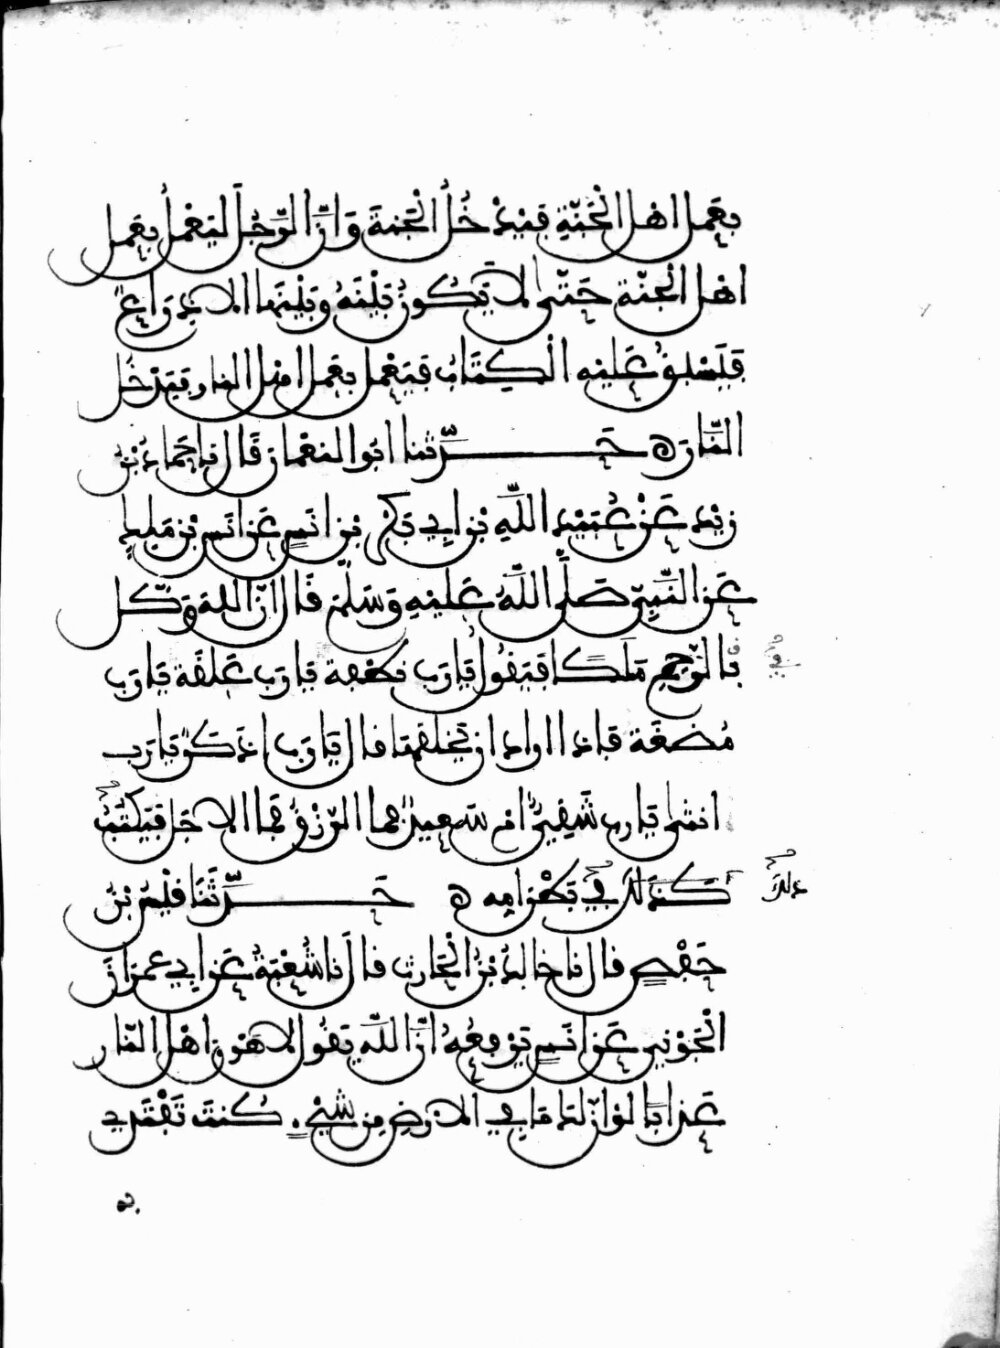 بعمل اهل الجنة فيدخل الجنة وان الرجل ليعمل بعمل
اهل الجنة حتى لا يكون بينه وبينها الا ذراع
فيسبق عليه الكتاب فيعمل بعمل اهل النار فيدخل
النار ه حدثنا ابو النعمان قال نا حماد بن
زيد عن عبيد الله بن ابي بكر بن انس عن انس بن ملك
عن النبي صلى الله عليه وسلم قال ان الله وكل
بالرحم ملكا فيقول يا رب نطفة يا رب علقة يا رب
مضغة فاذا اراد ان يخلقها قال يا رب اذكر يا رب
انثى يا رب شقي ام سعيد فما الرزق فما الاجل فيكتب
كذلك في بطن امه ه حدثنا قيس بن
حفص قال نا خالد بن الحارث قال نا شعبة عن ابي عمران
الجوني عن انس يرفعه ان الله يقول لاهون اهل النار
عذابا لو ان لك ما في الارض من شيء كنت تفتدي
به